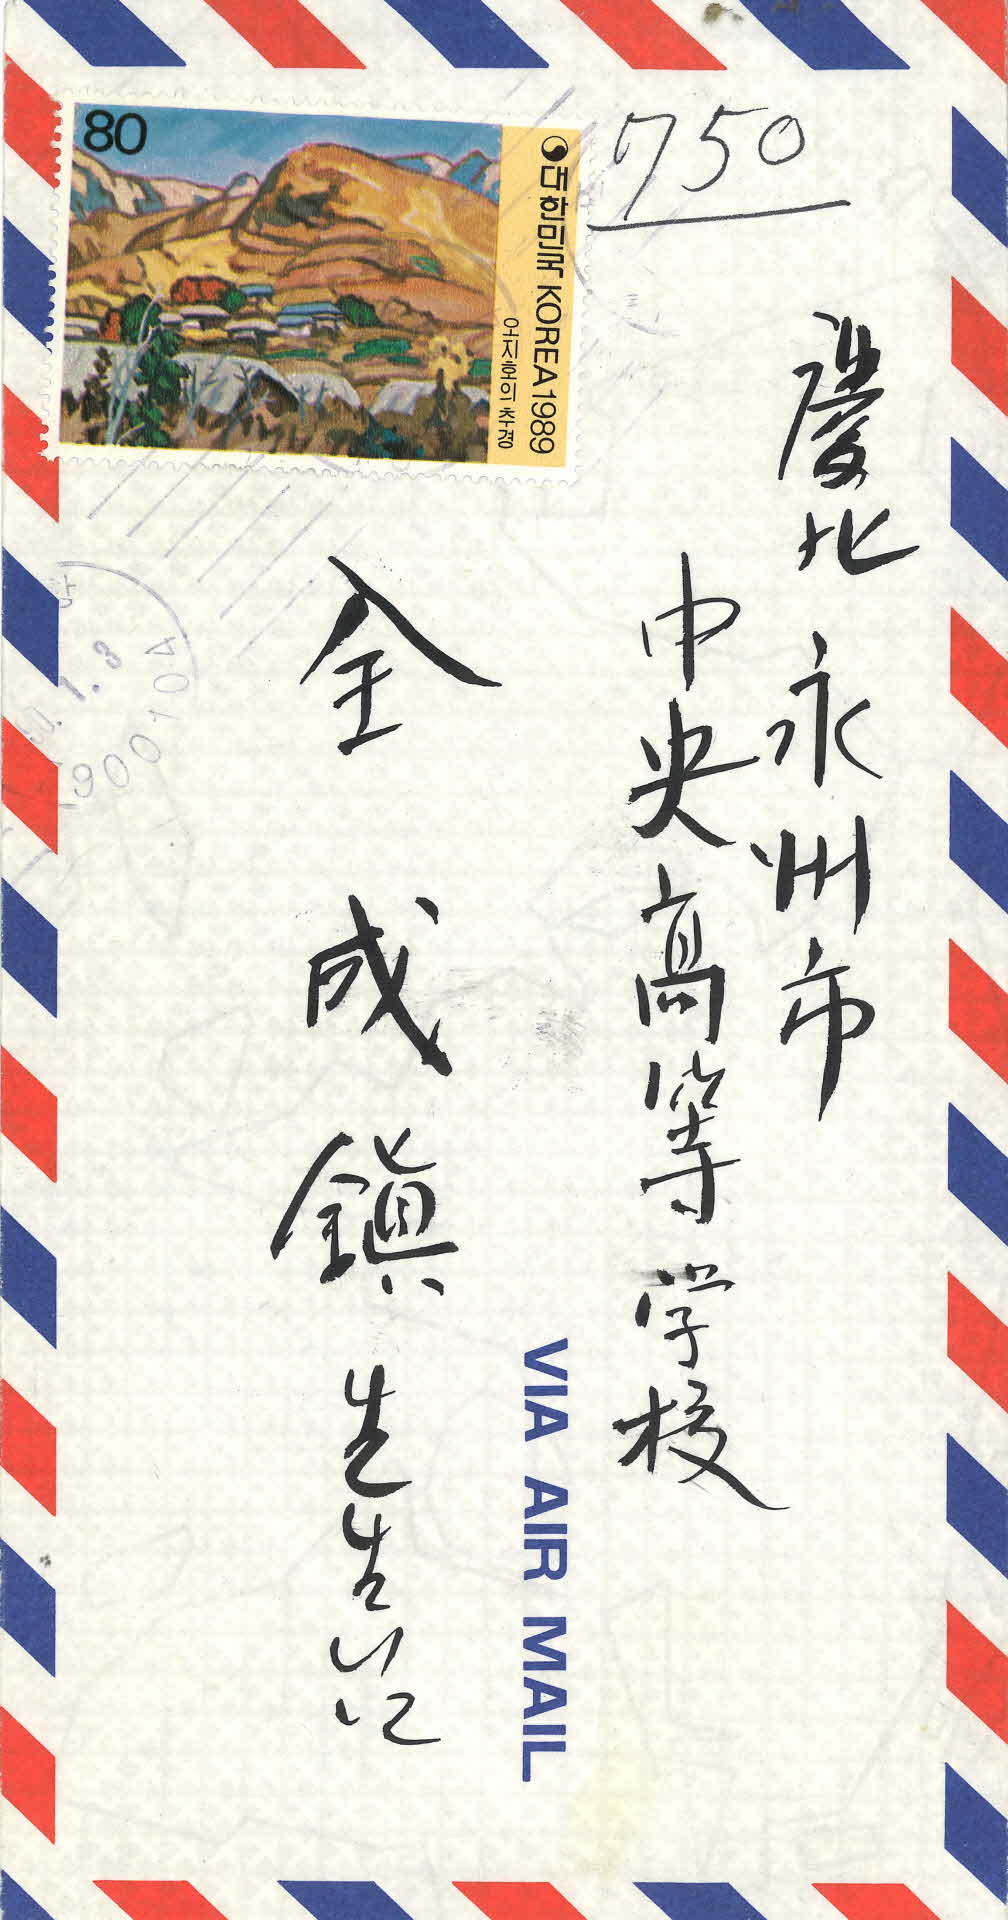 80
대한민국 KOREA 1989
오지호의 추경
750
慶北 永州市
中央高等学校
全成鎮 先生
VIA AIR MAIL
900104